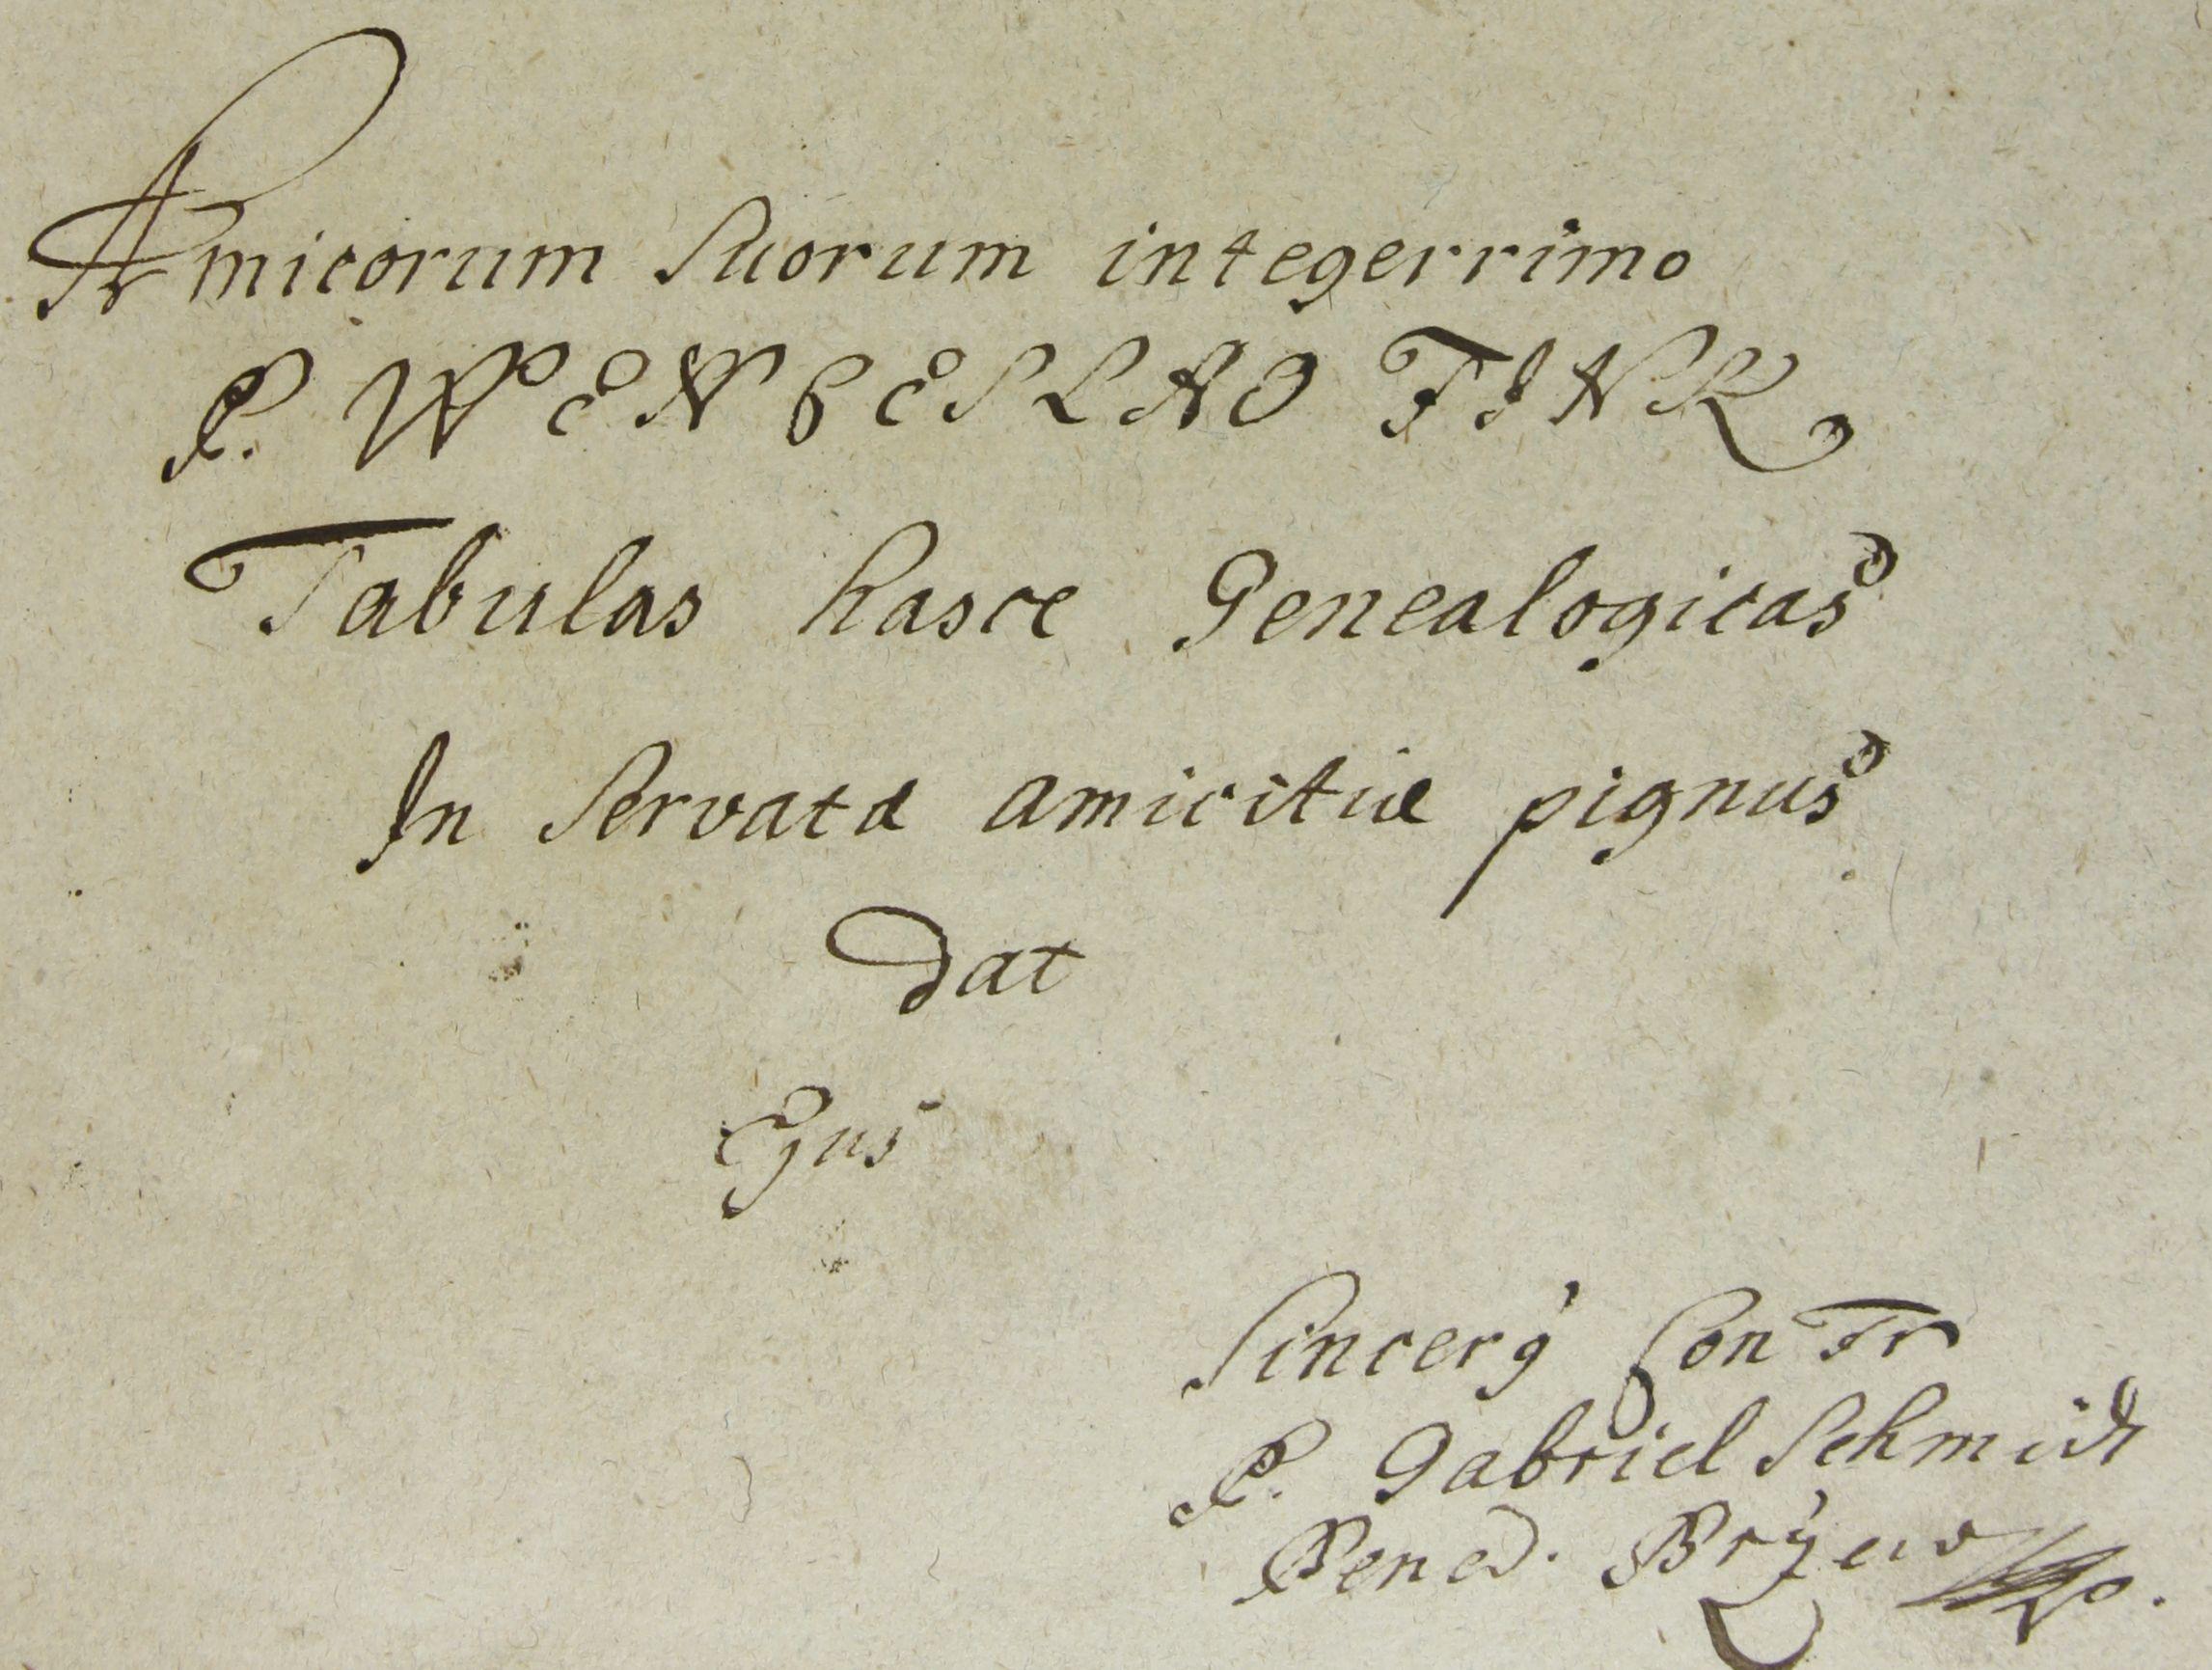 Amicorum Suorum integerrimo
P. WENCESLAO FINK
Tabulas hasce Genealogicas
In Servatæ amicitiæ pignus
Dat
Ejus
Sincerÿ Con Fr
P. Gabriel Schmidt
Bened.